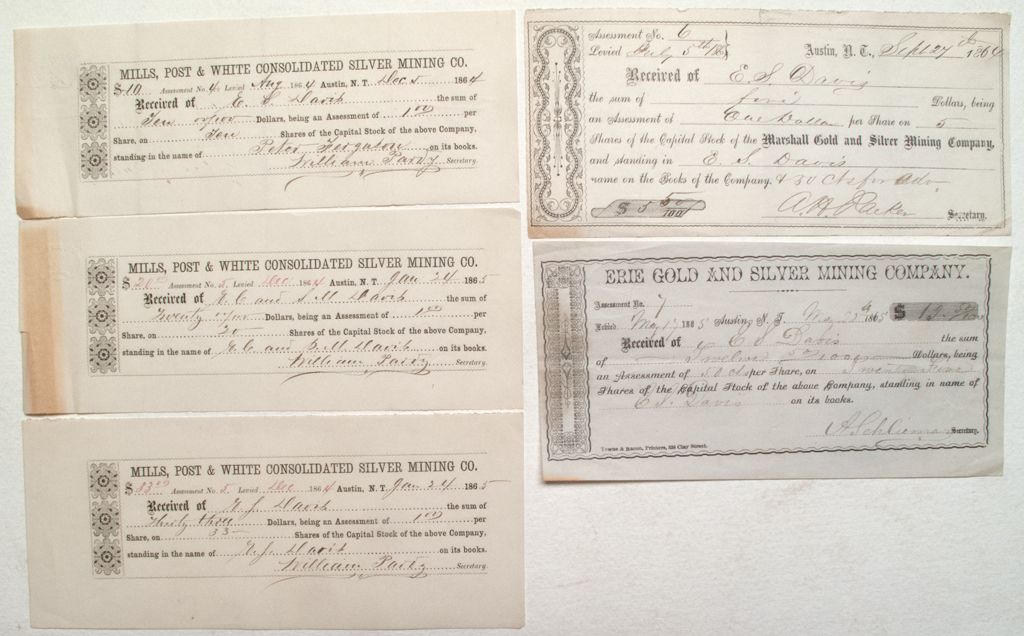 MILLS, POST & WHITE CONSOLIDATED SILVER MINING CO.
$10 Assessment No. 4 Levied Aug 1864 Austin, N. T. Dec 5 1864
Received of E. S. Davis the sum of
Ten Dollars, being an Assessment of 1 00 per
Share, on Ten Shares of the Capital Stock of the above Company,
standing in the name of Peter Ferguson on its books.
William Pardy Secretary.
MILLS, POST & WHITE CONSOLIDATED SILVER MINING CO.
$20 Assessment No. 5 Levied Dec 1864 Austin, N. T. Jan 24 1865
Received of and S. M. Davis the sum of
Twenty Dollars, being an Assessment of 1 00 per
Share, on 20 Shares of the Capital Stock of the above Company,
standing in the name of and S. M. Davis on its books.
William Pardy Secretary.
MILLS, POST & WHITE CONSOLIDATED SILVER MINING CO.
$33 00 Assessment No. 5 Levied Dec 1864 Austin, N. T. Jan 24 1865
Received of Davis the sum of
Thirty three Dollars, being an Assessment of 1 00 per
Share, on 33 Shares of the Capital Stock of the above Company,
standing in the name of Davis on its books.
William Pardy Secretary.
Assessment No. 6
Levied July 5th Austin, N. T., Sept 27th 1864
Received of E. S. Davis
the sum of five Dollars, being
an Assessment of One Dollar per Share on 5
Shares of the Capital Stock of the Marshall Gold and Silver Mining Company,
and standing in E. S. Davis
name on the Books of the Company. & 50 cts for adv.
$ 5 50/100 Secretary.
ERIE GOLD AND SILVER MINING COMPANY.
Assessment No. 7
Levied May 1865 Austin N. T. May 1865 $ 12.50
Received of E S Davis the sum
of Twelve Dollars, being
an Assessment of 50 cts per Share, on Twenty five
Shares of the Capital Stock of the above Company, standing in name of
E S. Davis on its books.
Secretary.
Towne & Bacon, Printers, 536 Clay Street.